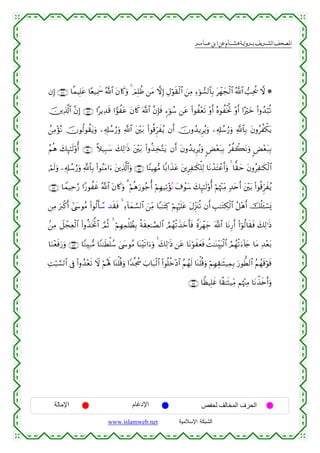 المصحف الشريف برواية هشام عن ابن عامر
* لَّا يُحِبُّ ٱللَّهُ ٱلْجَهْرَ بِٱلسُّوٓءِ مِنَ ٱلْقَوْلِ إِلَّا مَن ظُلِمَ ۚ وَكَانَ ٱللَّهُ سَمِيعًا عَلِيمًا إِن
تُبْدُوا۟ خَيْرًا أَوْ تُخْفُوهُ أَوْ تَعْفُوا۟ عَن سُوٓءٍ فَإِنَّ ٱللَّهَ كَانَ عَفُوًّا قَدِيرًا إِنَّ ٱلَّذِينَ
يَكْفُرُونَ بِٱللَّهِ وَرُسُلِهِۦ وَيُرِيدُونَ أَن يُفَرِّقُوا۟ بَيْنَ ٱللَّهِ وَرُسُلِهِۦ وَيَقُولُونَ نُؤْمِنُ
بِبَعْضٍ وَنَكْفُرُ بِبَعْضٍ وَيُرِيدُونَ أَن يَتَّخِذُوا۟ بَيْنَ ذَٰلِكَ سَبِيلًا أُو۟لَٰٓئِكَ هُمُ
ٱلْكَٰفِرُونَ حَقًّا ۚ وَأَعْتَدْنَا لِلْكَٰفِرِينَ عَذَابًا مُّهِينًا وَٱلَّذِينَ ءَامَنُوا۟ بِٱللَّهِ وَرُسُلِهِۦ وَلَمْ
يُفَرِّقُوا۟ بَيْنَ أَحَدٍ مِّنْهُمْ أُو۟لَٰٓئِكَ سَوْفَ نُؤْتِيهِمْ أُجُورَهُمْ ۗ وَكَانَ ٱللَّهُ غَفُورًا رَّحِيمًا
يَسْـَٔلُكَ أَهْلُ ٱلْكِتَٰبِ أَن تُنَزِّلَ عَلَيْهِمْ كِتَٰبًا مِّنَ ٱلسَّمَآءِ ۚ فَقَد سَّأَلُوا۟ مُوسَىٰٓ أَكْبَرَ مِن
ذَٰلِكَ فَقَالُوٓا۟ أَرِنَا ٱللَّهَ جَهْرَةً فَأَخَذَتْهُمُ ٱلصَّٰعِقَةُ بِظُلْمِهِمْ ۚ ثُمَّ ٱتَّخَذُوا۟ ٱلْعِجْلَ مِنۢ
بَعْدِ مَا جَآءَتْهُمُ ٱلْبَيِّنَٰتُ فَعَفَوْنَا عَن ذَٰلِكَ ۚ وَءَاتَيْنَا مُوسَىٰ سُلْطَٰنًا مُّبِينًا وَرَفَعْنَا
فَوْقَهُمُ ٱلطُّورَ بِمِيثَٰقِهِمْ وَقُلْنَا لَهُمُ ٱدْخُلُوا۟ ٱلْبَابَ سُجَّدًا وَقُلْنَا لَهُمْ لَا تَعْدُوا۟ فِي ٱلسَّبْتِ
وَأَخَذْنَا مِنْهُم مِّيثَٰقًا غَلِيظًا
الحرف المخالف لحفص الإدغام الإمالة
www.islamweb.net الشبكة الإسلامية